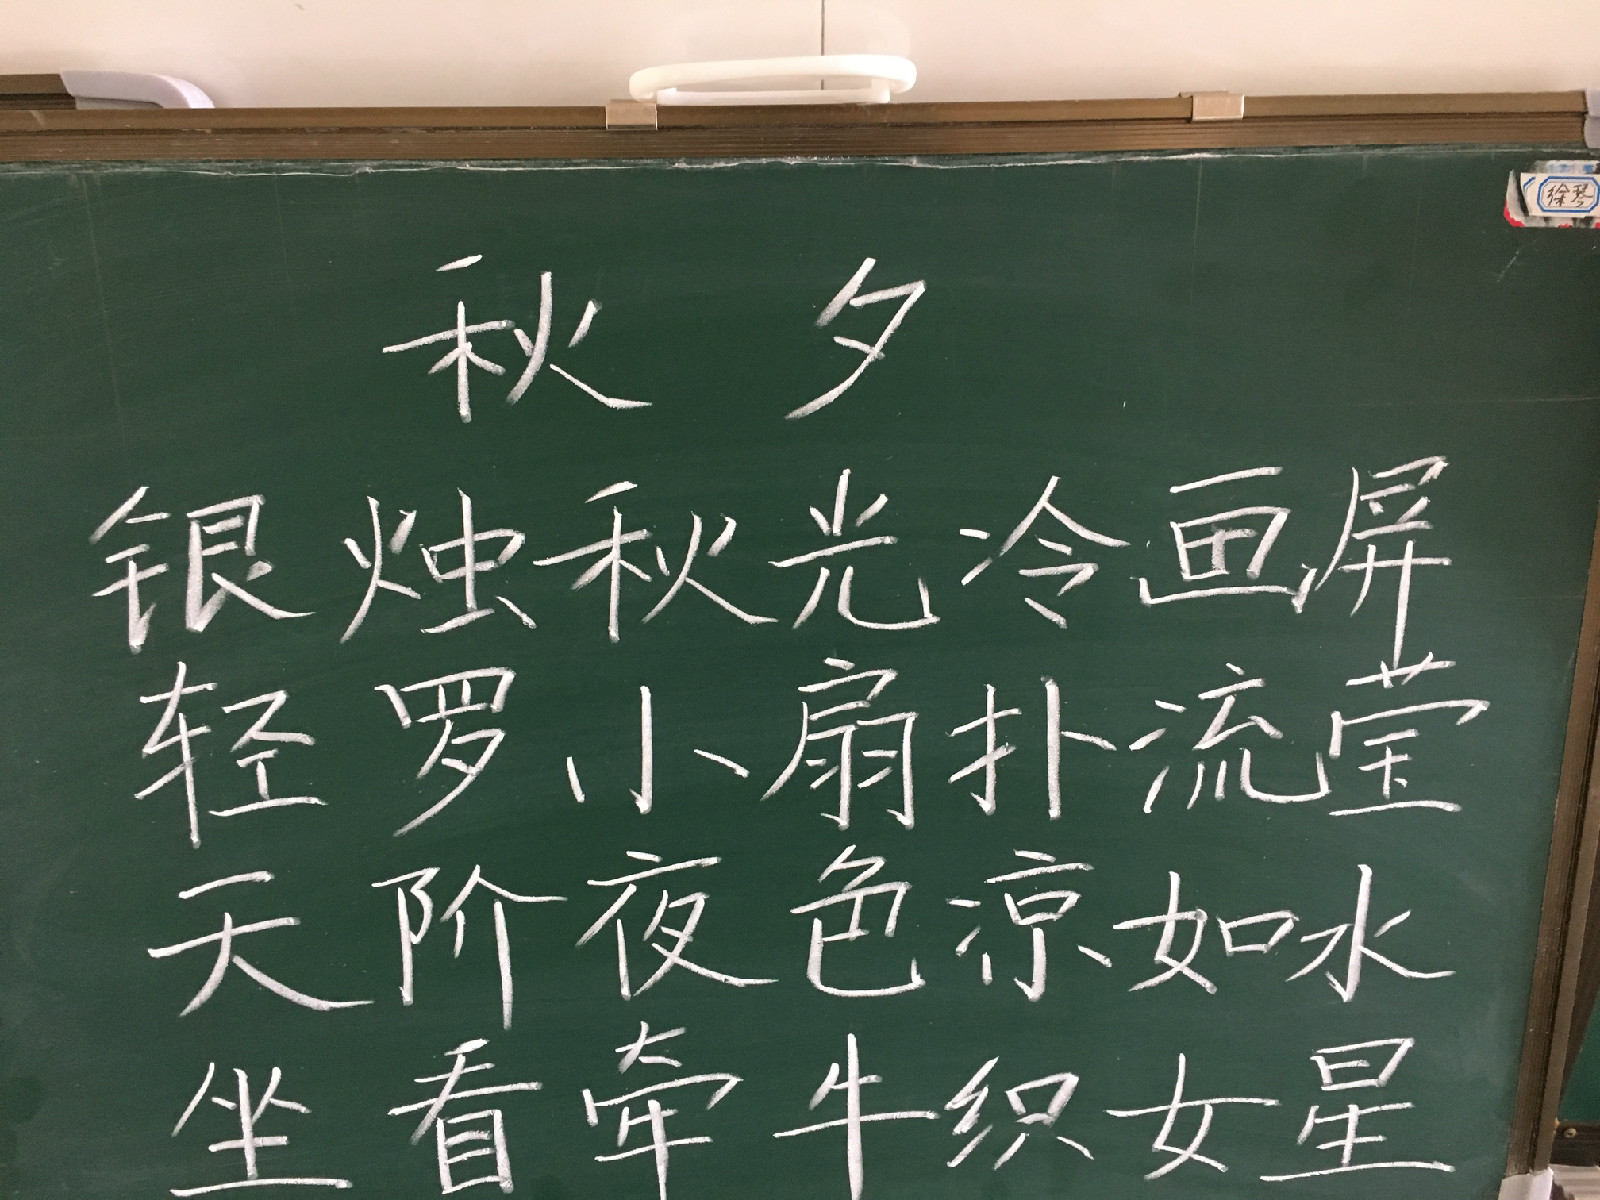 徐琴
秋夕
银烛秋光冷画屏
轻罗小扇扑流莹
天阶夜色凉如水
坐看牵牛织女星